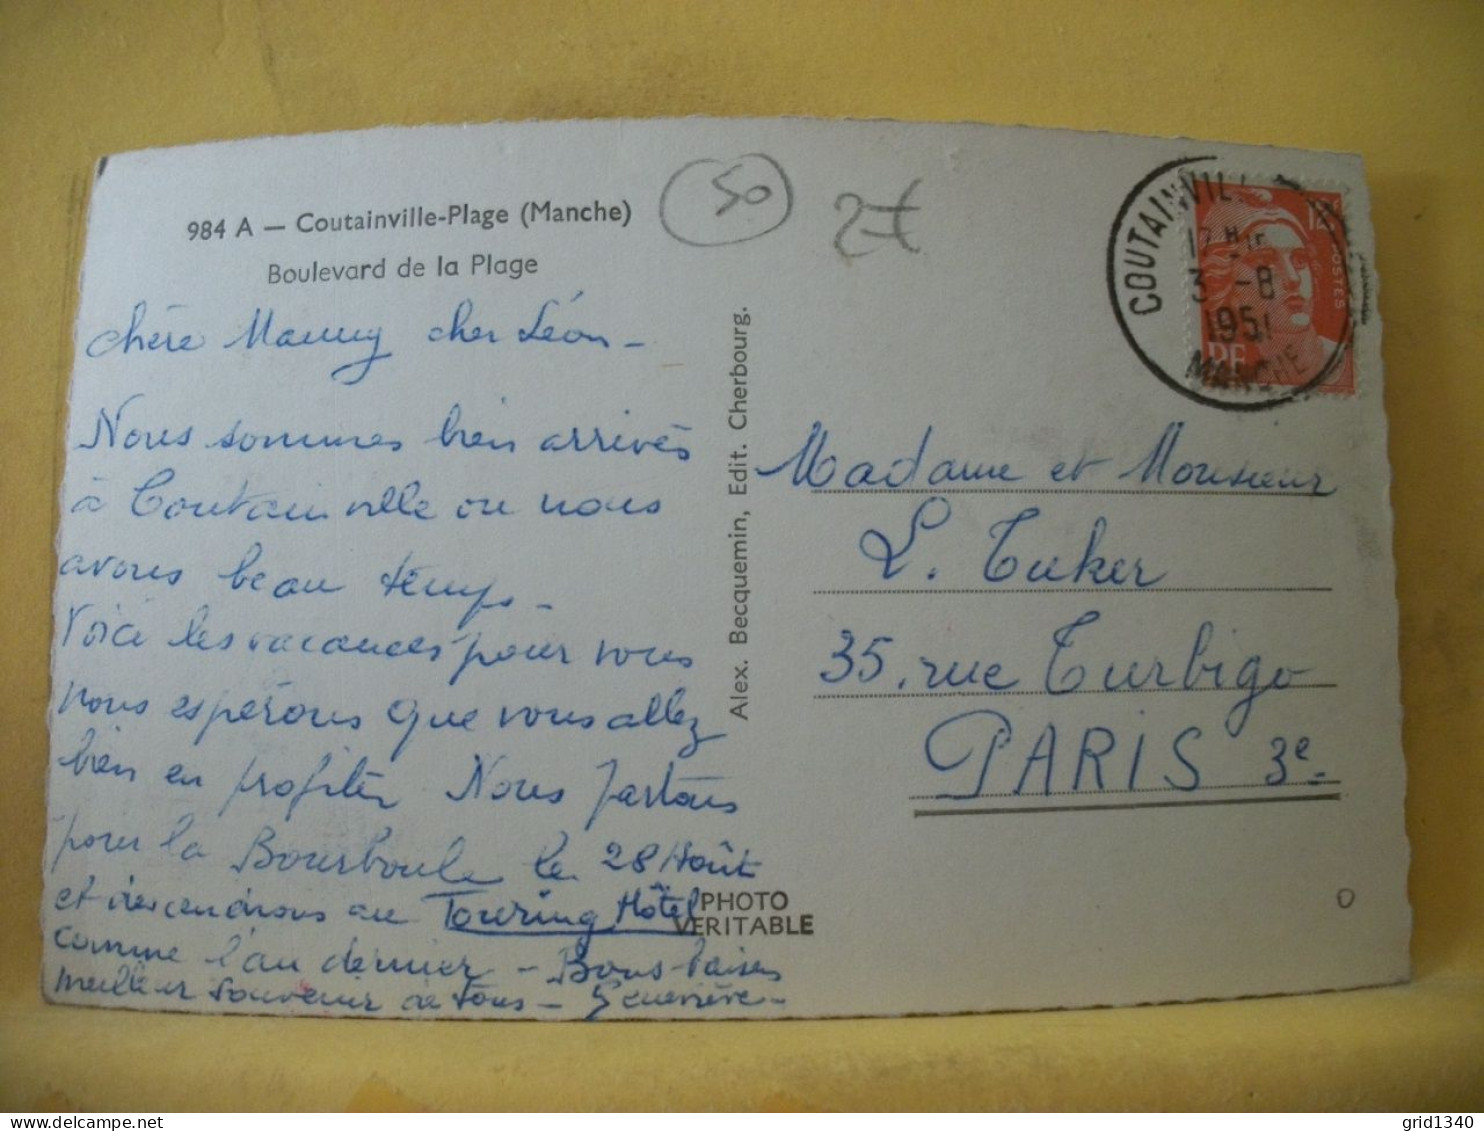 984 A — Coutainville-Plage (Manche)
Boulevard de la Plage
50
2€
COUTAINVILLE
3 -8
1951
MANCHE
12F
POSTES
RF
chère Manny cher Léon -
Nous sommes bien arrivés
à Coutainville ou nous
avons beau temps -
Voici les vacances pour vous
nous espérons que vous allez
bien en profiter Nous partons
pour la Bourboule le 28 Août
et descendrons au Touring Hôtel
comme l'an dernier - Bons baisers
meilleur souvenir de tous - Geneviève -
Alex. Becquemin, Edit. Cherbourg.
PHOTO
VERITABLE
Madame et Monsieur
L. Tuker
35, rue Turbigo
PARIS 3e -
0
delcampe.net
grid1340